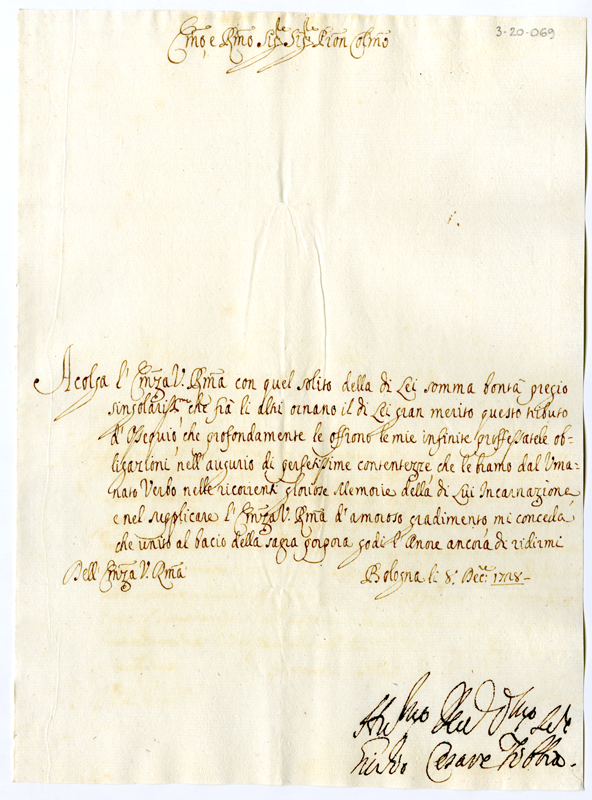 3-20-069
Em̃o, e Rm̃o Sig.re Sig.re Pron Colm̃o
Acolga l'Emz̃a V. Rm̃a con quel solito della di Lei somma bontà pregio
singolariss.mo che già li altri ornano il di Lei gran merito questo tributo
d'Ossequio, che profondamente le offrono le mie infinite proffessatele ob-
ligazioni, nell'augurio di perfetissime contentezze che le bramo dal Uma-
nato Verbo nelle ricorrenti gloriose Memorie della di Lui Incarnazione,
e nel supplicare l'Emz̃a V. Rm̃a d'amoroso gradimento mi conceda,
che unito al bacio della sagra porpora godi l'Onore ancora di ridirmi
Dell Emz̃a V. Rm̃a
Bologna li 8. Dec. 1728-
Cesare